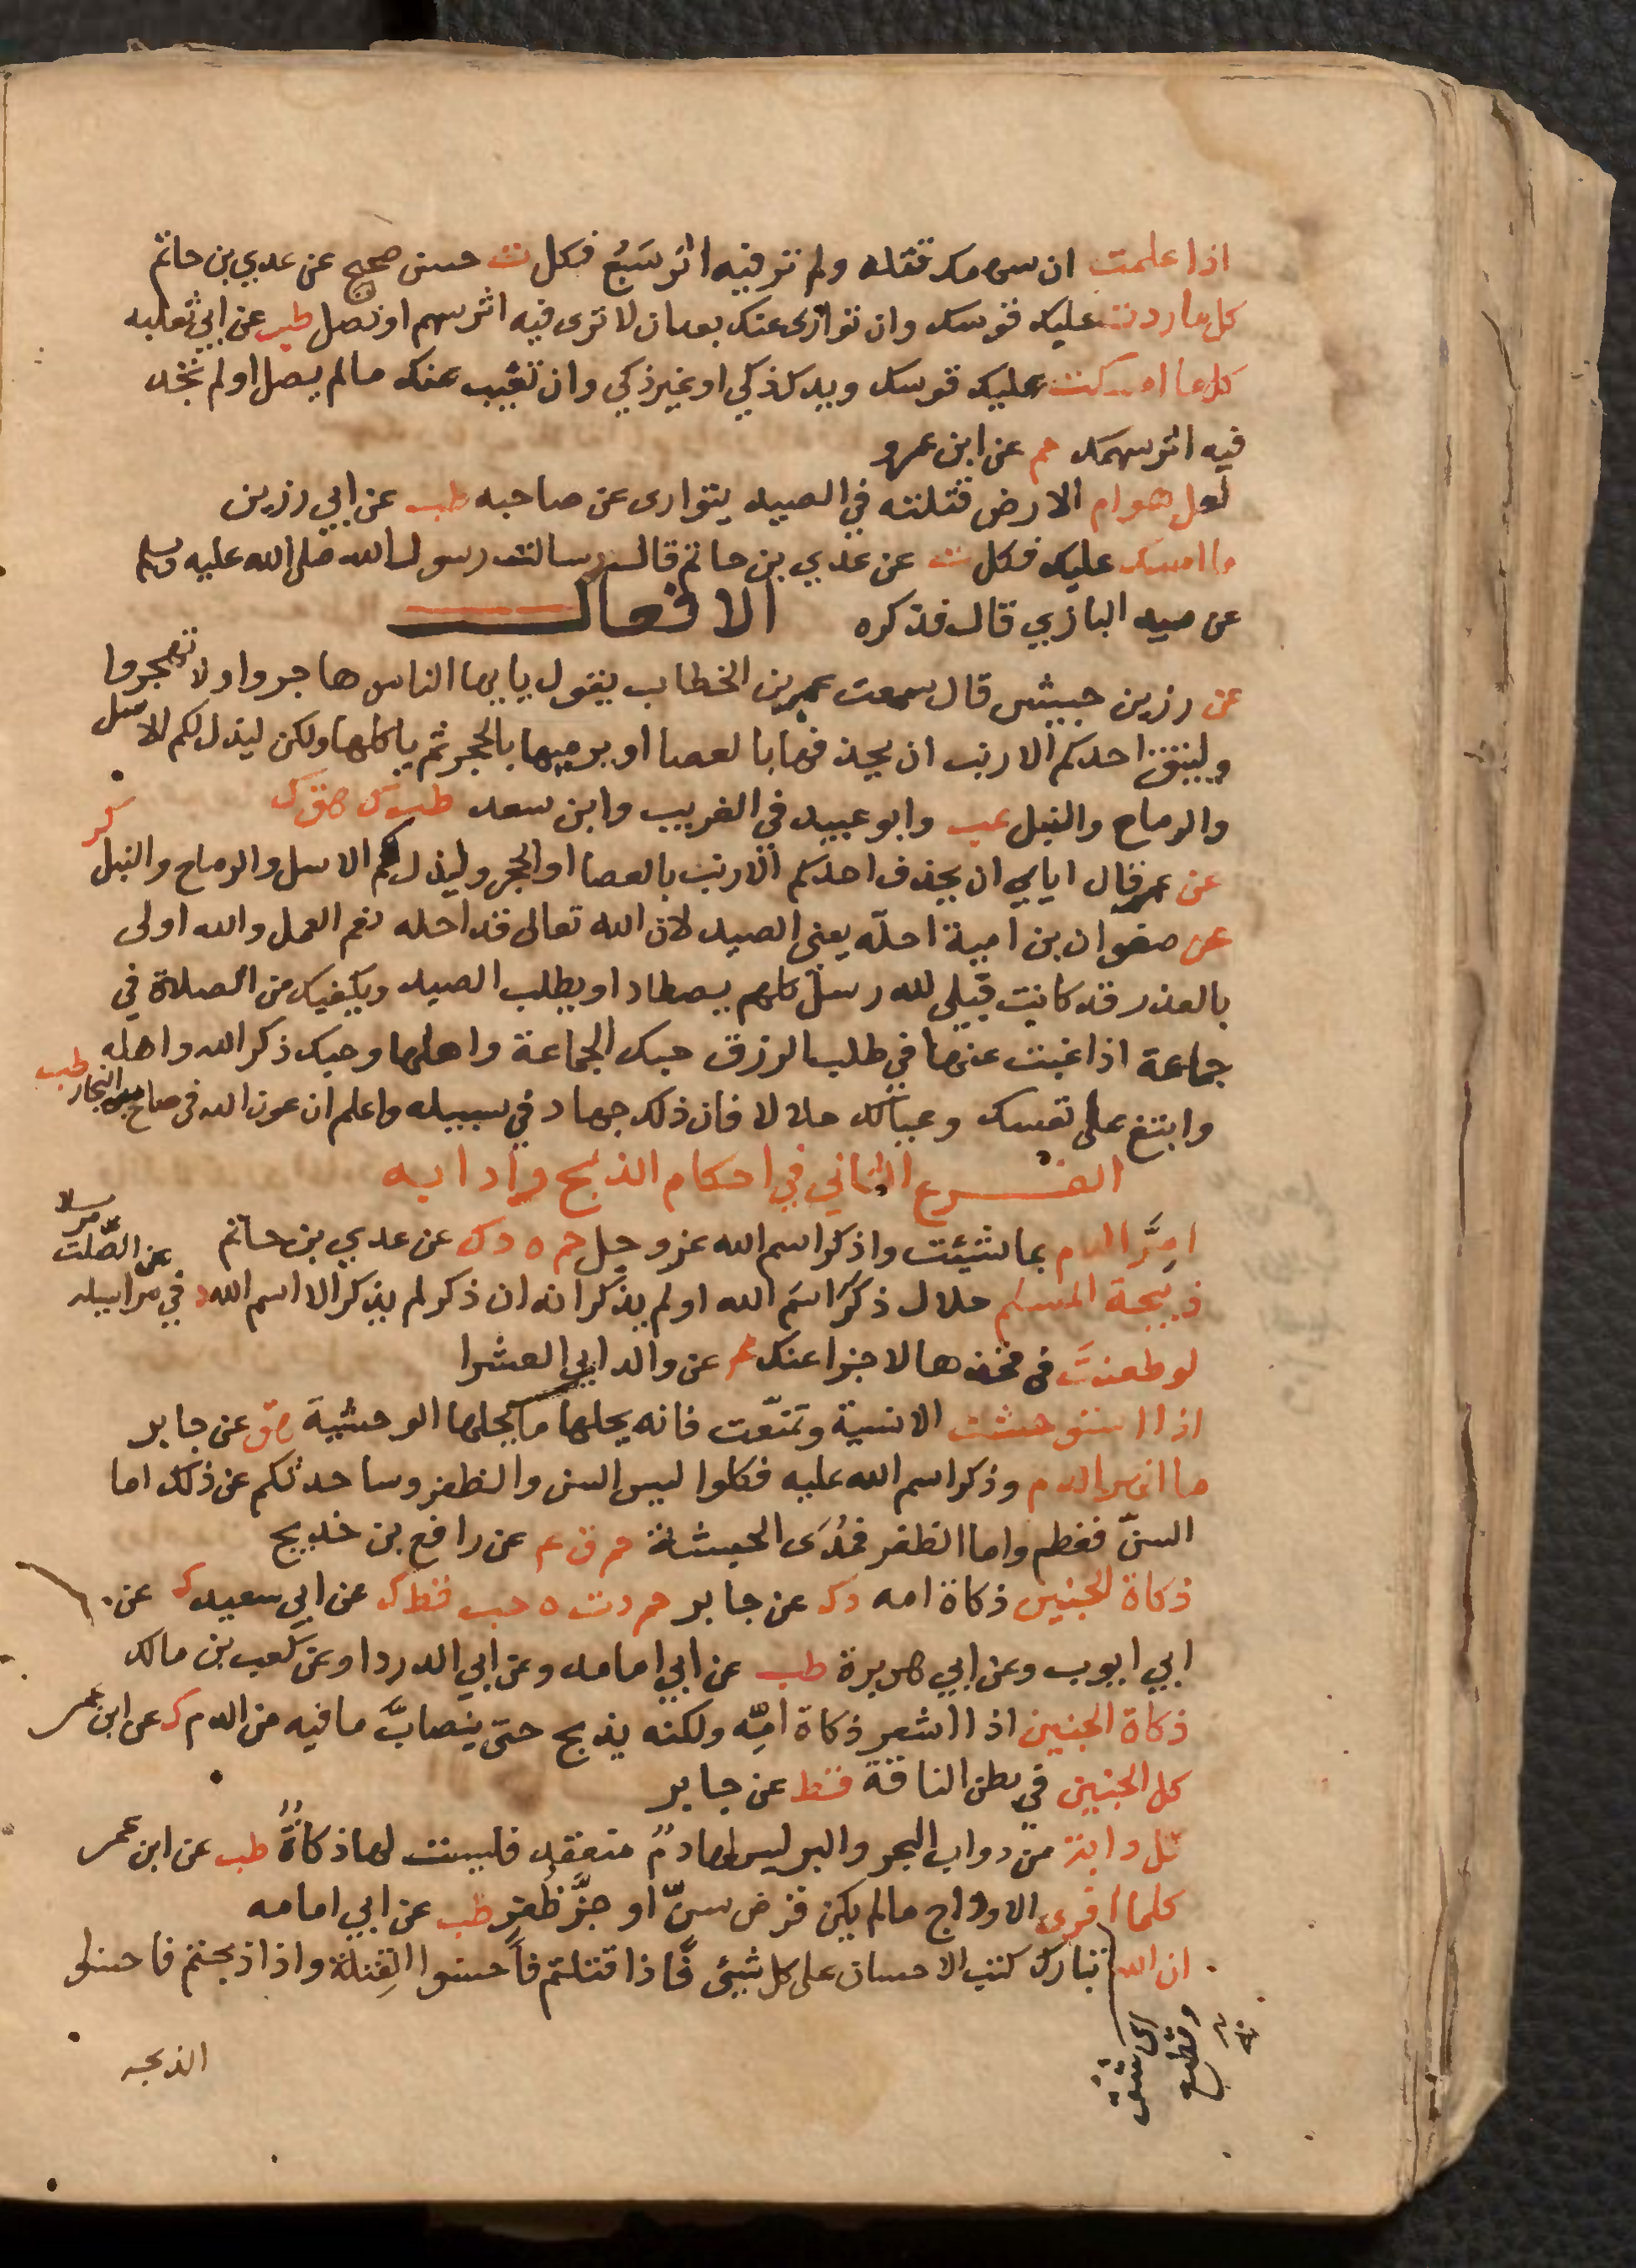 اذا علمت ان سهمك قتله ولم تر فيه اثر سَبُع فكل ت حسن صحيح عن عدي بن حاتم
كل ما ردت عليك قوسك وان توارى عنك بعد ان لا ترى فيه اثر سهم او نصل طب عن ابي ثعلبه
كل ما امسكت عليك قوسك ويدك ذكي او غير ذكي وان تغيب عنك مالم يصل او لم تجد
فيه اثر سهمك حم عن ابن عمرو
لعل هوام الارض قتلته في الصيد يتوارى عن صاحبه طب عن ابي رزين
ما امسك عليك فكل ت عن عدي بن حاتم قال سالت رسول الله صلى الله عليه وسلم
عن صيد البازي قال فذكره الافعال
عن زر بن حبيش قال سمعت عمر بن الخطاب يقول يا يها الناس هاجروا ولا تهجروا
وليتق احدكم الارنب ان يحذفها بالعصا او يرميها بالحجر ثم ياكلها ولكن ليذك لكم الاسل
والرماح والنبل عب وابو عبيد في الغريب وابن سعد طب ك هق كر
عن عمر قال اياي ان يحذف احدكم الارنب بالعصا او الحجر وليذك لكم الاسل والرماح والنبل
عن صفوان بن امية احلّه يعني الصيد لان الله تعالى قد احله نعم العمل والله اولى
بالعذر قد كانت قبلي لله رسل كلهم يصطاد او يطلب الصيد ويكفيك من الصلاة في
جماعة اذا غبت عنها في طلب الرزق حبك الجماعة واهلها وحبك ذكر الله واهله طب
وابتغ على نفسك وعيالك حلالا فان ذلك جهاد في سبيله واعلم ان عون الله في صالح التجار
الفرع الثاني في احكام الذبح وادابه
امِرَّ الدم بما شيئت واذكر اسم الله عز وجل حم ه د ك عن عدي بن حاتم
عن الصّلت مرسلا
ذبيحة المسلم حلال ذكر اسم الله او لم يذكر انه ان ذكر لم يذكر الا اسم الله د في مراسيله
لو طعنتَ في فخذها لاجزا عنك حم عن والد ابي العشرا
اذا استوحشت الانسية وتمنّعت فانه يحلها ما يحل الوحشية هق عن جابر
ما انهر الدم وذكر اسم الله عليه فكلوا ليس السن والظفر وساحدثكم عن ذلك اما
السنّ فعظم واما الظفر فمُدَى الحبشة حم ق ع عن رافع بن خديج
ذكاة الجنين ذكاة امه د ك عن جابر حم د ت ه حب قط ك عن ابي سعيد ك عن
ابي ايوب وعن ابي هريرة طب عن ابي امامه وعن ابي الدردا وعن كعب بن مالك
ذكاة الجنين اذا اشعر ذكاة امِّه ولكنه يذبح حتى ينصابَّ ما فيه من الدم ك عن ابن عمر
كل الجنين في بطن الناقة قط عن جابر
كل دابة من دواب البحر والبر ليس لها دمٌ منعقد فليست لها ذكاةٌ طب عن ابن عمر
كلما افرى الاوداج مالم يكن قرض سنّ او حزَّ ظُفرٍ طب عن ابي امامه
ان الله تبارك كتب الاحسان على كل شيئ فاذا قتلتم فاحسنوا القِتلة واذا ذبحتم فاحسنوا
اى شق
وقطع
الذبحه